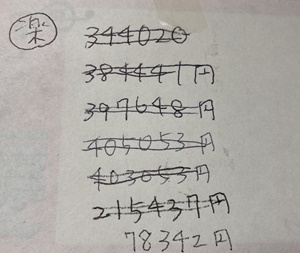 楽
344020
384441円
397648円
405053円
403053円
215437円
78342円